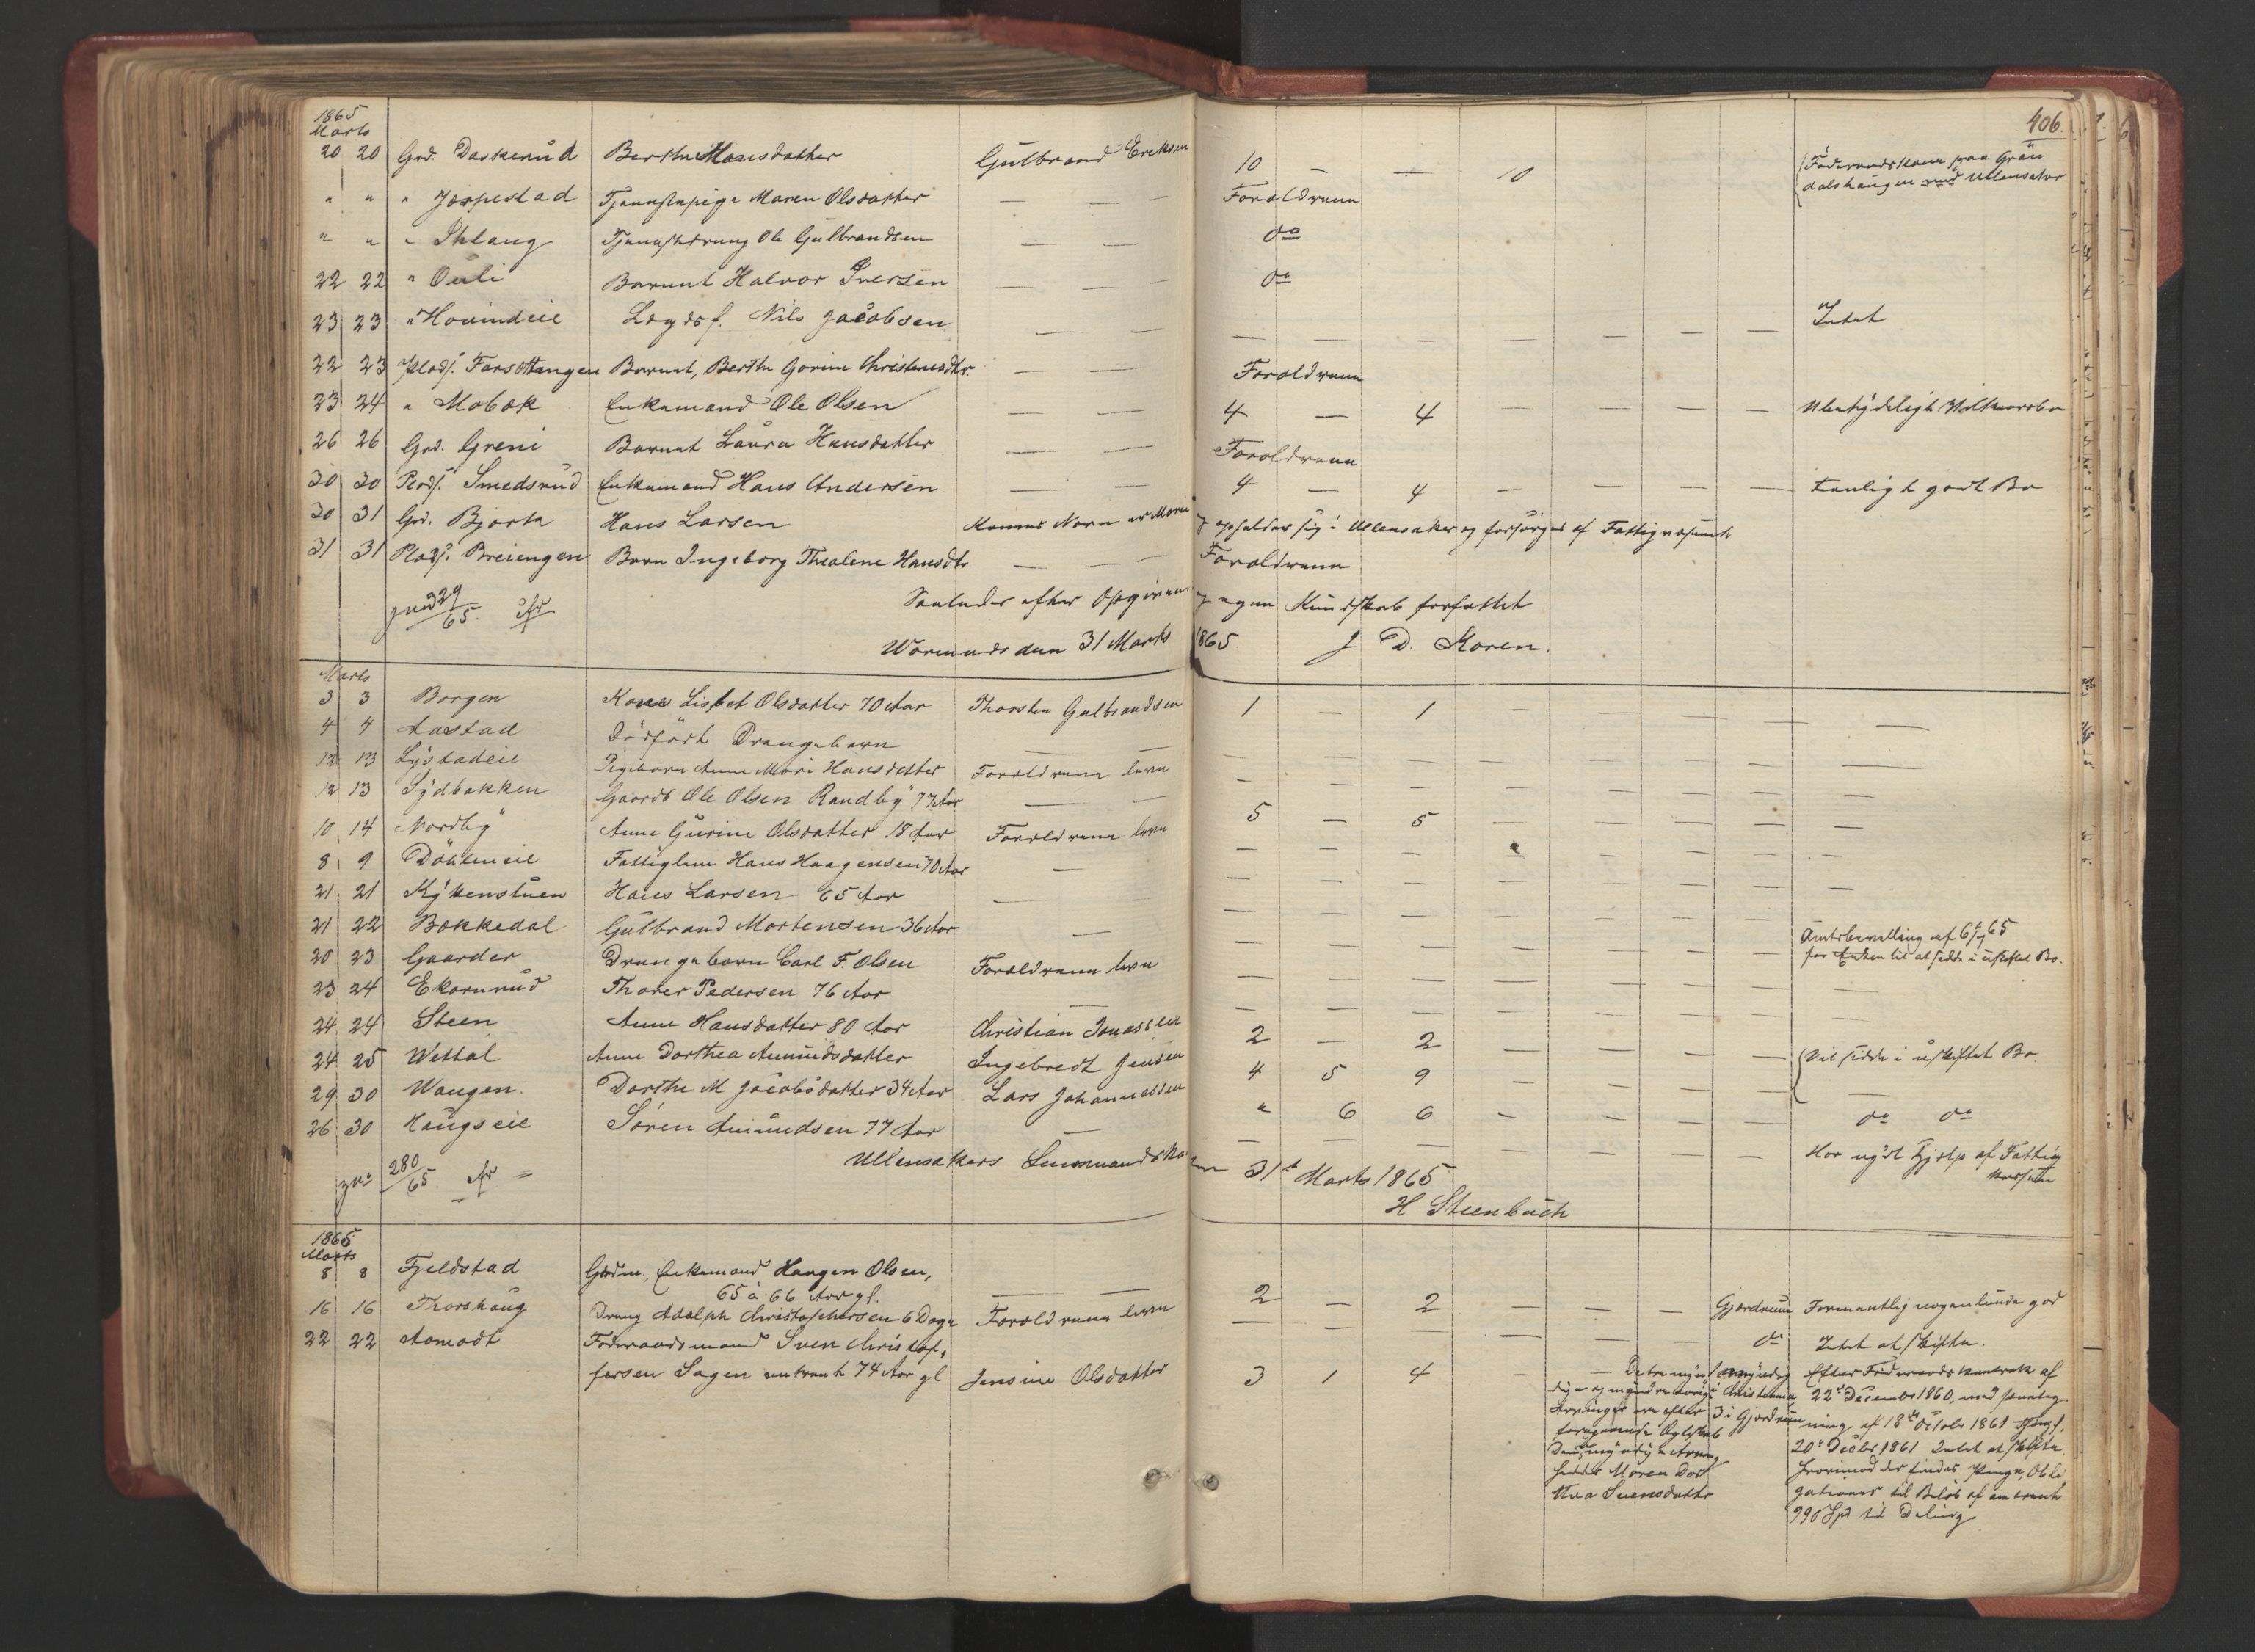 406.
1865
Marts
20 20 Grd. Daskerud Berthe Hansdatter Gulbrand Eriksen 10 — 10 Föderaadskone paa Grön
dalshaugen Ullensaker
" " " Jæspestad Tjenestepige Maren Olsdatter — — — Forældrene
" " " Tjenestedreng Ole Gulbrandsen — — — do
22 22 " Ouli Barnet Halvor Iversen — — — do
23 23 " Hovindeie Lægdsl. Nils Jacobsen — — — — — — — — — Intet
22 23 Plads. Farsöttangen Barnet, Berthe Gorine Christensdtr. — — Forældrene
23 24 " Mobæk Enkemand Ole Olsen — — 4 — 4 — — — — Ubetydeligt
26 26 Grd. Greni Barnet Laura Hansdatter — — — Forældrene
30 30 Plads. Smedsrud Enkemand Hans Andersen — — — 4 — 4 — — — — temligt godt Bo
30 31 Grd. Bjerke Hans Larsen Konens Navn er og opholder sig i Ullensaker og forsörges af Fattigvæsenet
31 31 Plads. Breiengen Barn Ingeborg Thealene Hansdtr — — — Forældrene
Saaledes efter Opgivende og egen Kundskab forfattet
329/65.
den 31 Marts 1865 J D. Koren.
Marts
3 3 Borgen Kone Lisbet Olsdatter 70 Aar Thorsten Gulbrandsen 1 — 1 — — — — —
4 4 Aastad Dödfödt Drengebarn — — — — — — — — —
12 13 Lystadeie Pigebarn Anne Mari Hansdatter Forældrene leve — — — — — — — —
12 13 Sydbakken Gaardb Ole Olsen Randby 77 Aar — — 5 — 5 — — — — —
10 14 Nordby Anne Gurine Olsdatter 18 Aar Forældrene leve — — — — — — — —
8 9 Döhleneie Fattiglem Hans Haagensen 70 Aar — — — — — — — — —
21 21 Kykenstuen Hans Larsen 65 Aar — — — — — — — —
21 22 Bækkedal Gulbrand Mortensen 36 Aar — — — — — — — — Amtsbevilling af 65
for Enken til at sidde i uskiftet Bo.
20 23 Gaarder Drengebarn Carl F. Olsen Forældrene leve — — — — — — — —
23 24 Ekornrud Thorer Pedersen 76 Aar — — — — — — — — —
24 24 Steen Anne Hansdatter 80 Aar Christian Jonassen 2 — 2 — — — —
24 25 Wettal Anne Dorthea Amundsdatter Ingebredt Jensen 4 5 9 — — — — vil sidde i uskiftet Bo.
29 30 Waugen. Dorthe M Jacobsdatter 34 Aar Lars Johannessen " 6 6 — — — — do do
26 30 Haugseie Sören Amundsen 77 Aar — — — — — — — — Har nydt Hjælp af Fattig
kassen
280/65.
Ullensakers 31te Marts 1865
H Steenbuch
1865
Marts
8 8 Fjeldstad Grdm., Enkemand Haagen Olsen,
65 á 66 Aar gl. — — 2 — 2 — — — Gjerdrum Formentlig nogenlunde god
16 16 Thorshaug Dreng Adolph Christophersen 6 Dage Forældrene leve — — — — — — do Intet at skifte.
22 22 Aamodt Föderaadsmand Sven Christof,
fersen Sagen omtrent 74 Aar gl Jensine Olsdatter 3 1 4
De tre myn
dige og mindreaarige i Christiania,
Arvinger ere efter 3 i Gjerdrum
foregaaende Ægteskab
Den Arving
hedder Maren Dor
thea Svensdatter
Efter Föderaadskontrakt af
22de December 1860, med
ning af 18de October 1861
20de Decbr. 1861 Intet at skifte
hvorimod der findes Penge, Obli
gationer til Belöb af omtrent
990 Spd til Deling